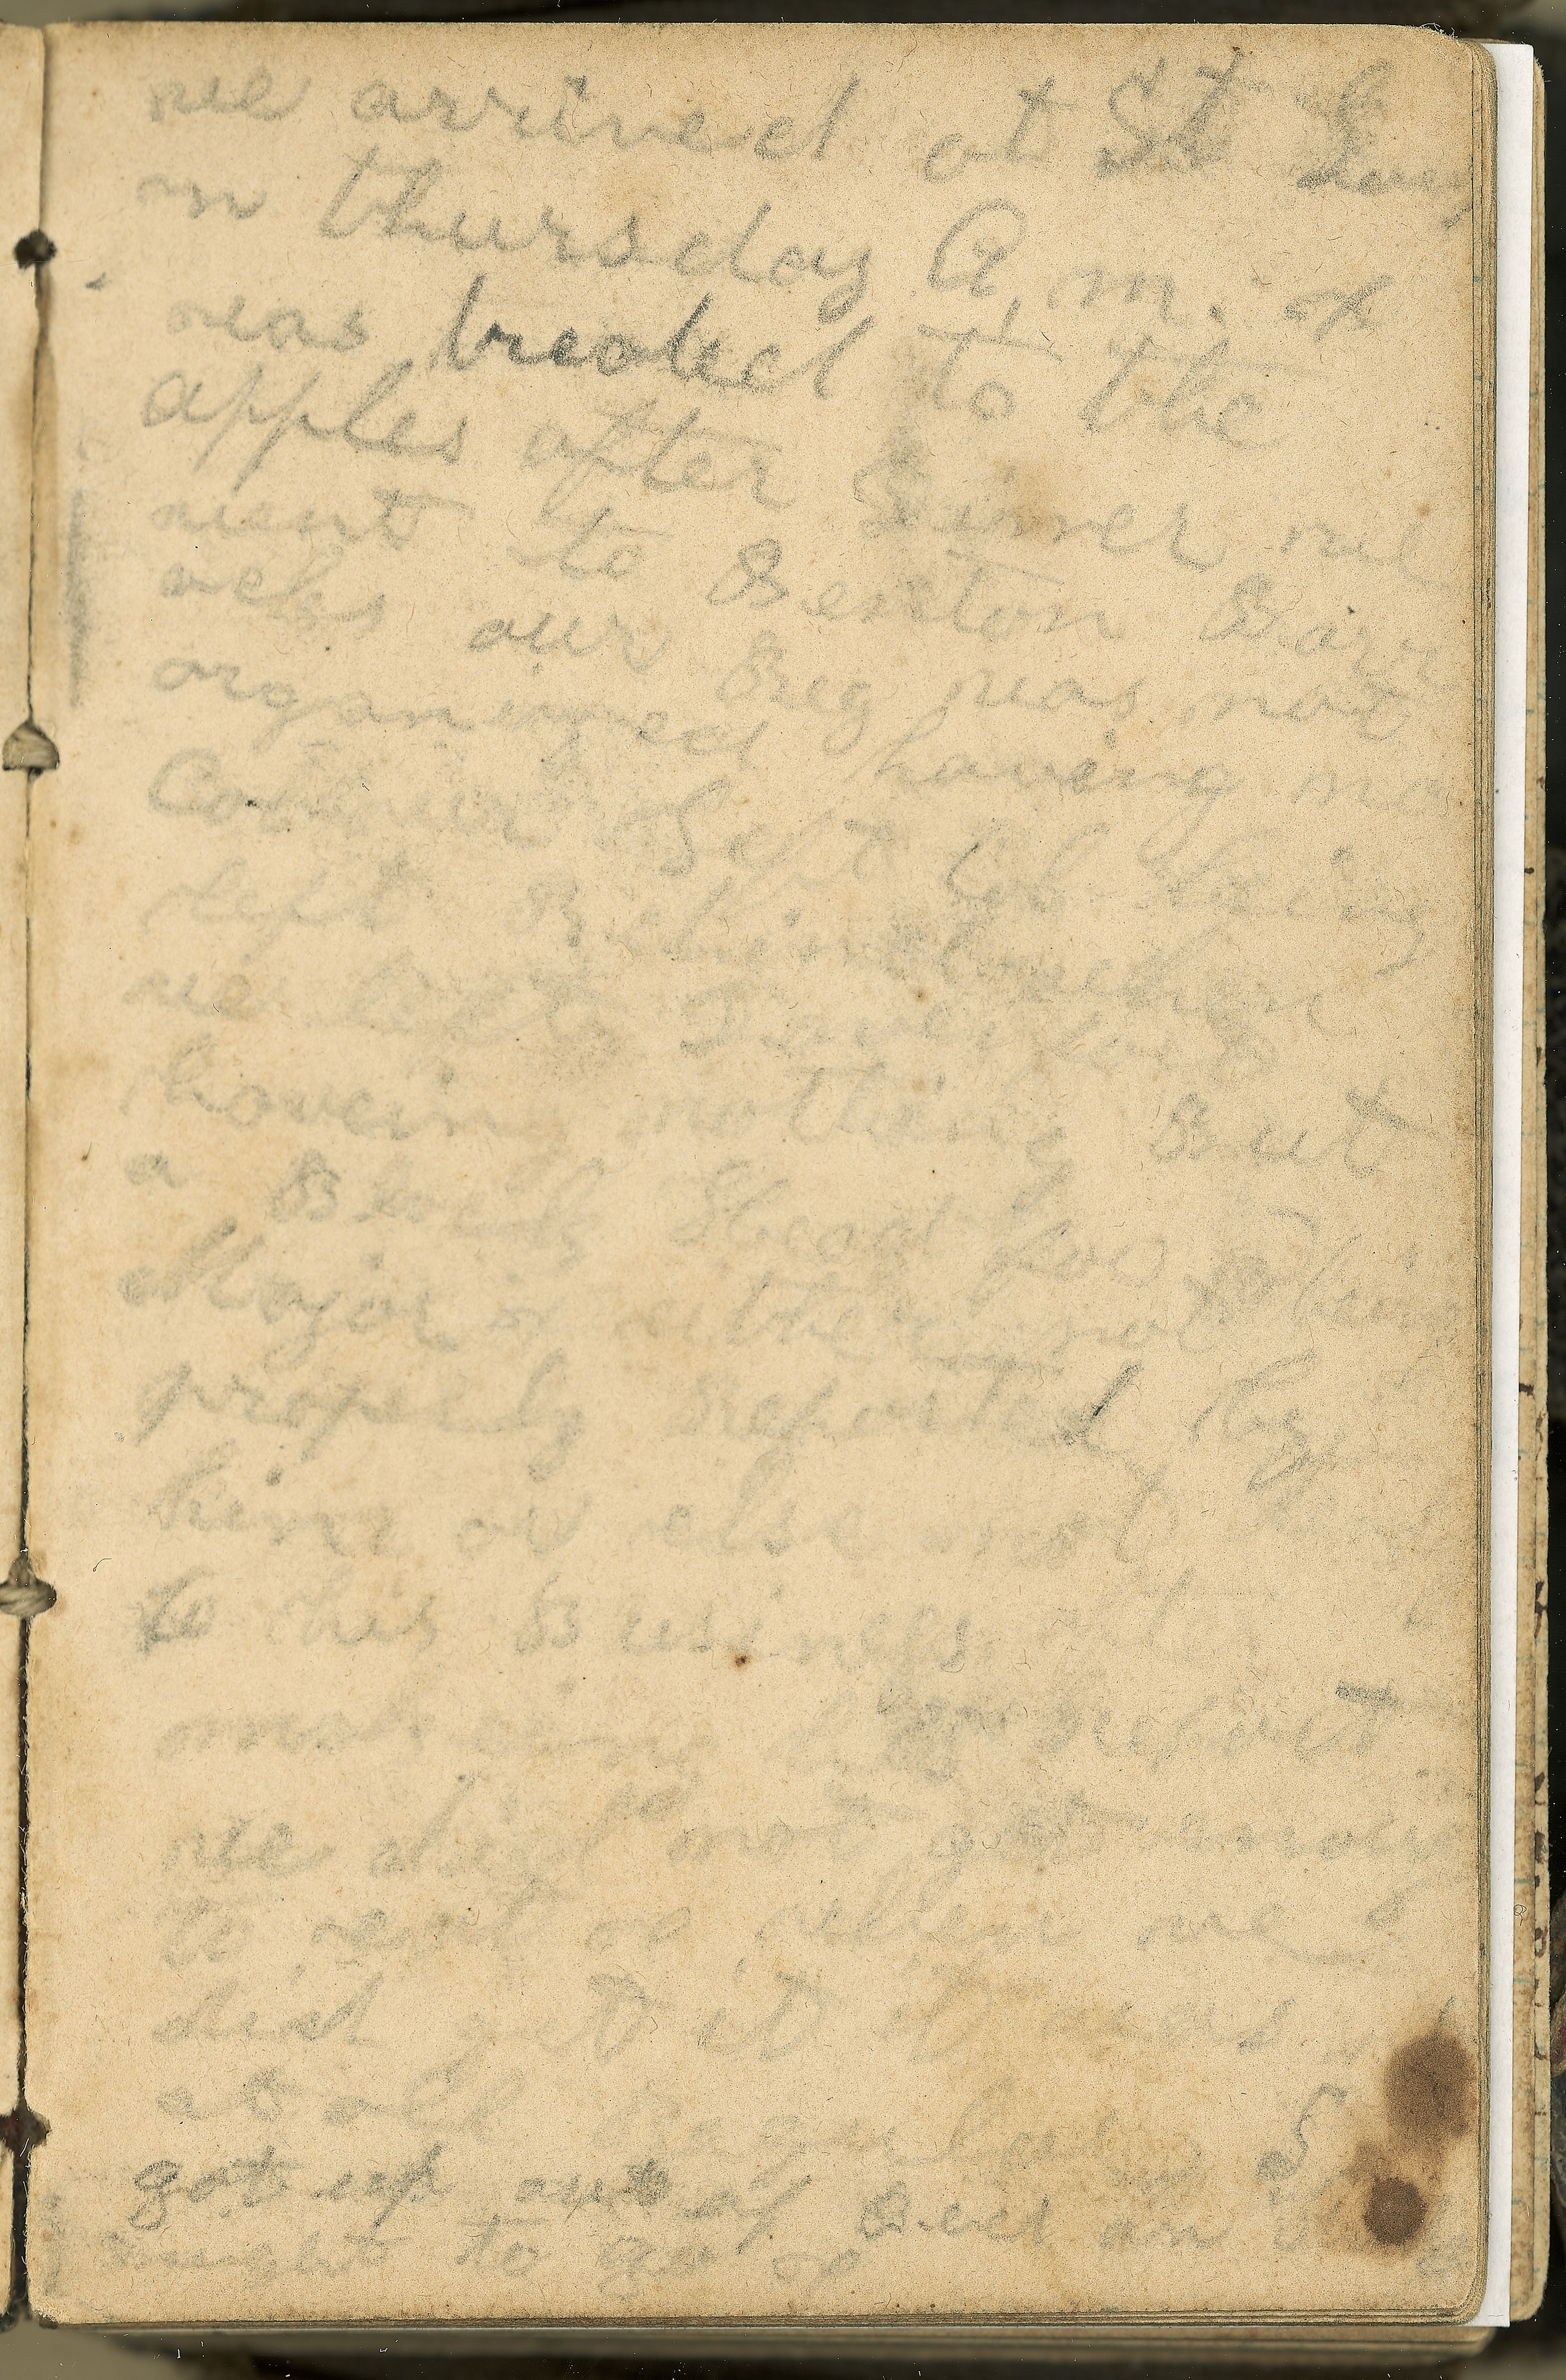 we arrived at St Louis
on thursday A. m. &
was treated to the
apples after Dinner we
went to Benton Barr
acks our Reg was not
organized having no
Col being
left Behind when
we left Davenport
haveing nothing But
a Block Head for
Major & either not being
properly Reported by
him or else not
to his Business
making his Report
we did not get
to eat or when we
did get it it was
at all I
got up out of Bed on
night to go &